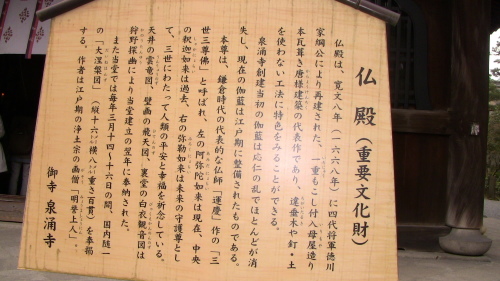 仏殿(重要文化財)
仏殿は、寛文八年(一六六八年)に四代将軍徳川
家綱公により再建された、一重もこし付入母屋造り
本瓦葺き唐様建築の代表作であり、遠垂木や釘・土
を使わない工法に特色をみることができる。
泉涌寺創建当初の伽藍は応仁の乱でほとんどが消
失し、現在の伽藍は江戸期に整備されたものである。
本尊は、鎌倉時代の代表的な仏師「運慶」作の「三
世三尊佛」と呼ばれ、左の阿弥陀如来は現在、中央
の釈迦如来は過去、右の弥勒如来は未来の守護尊とし
て、三世にわたって人類の平安と幸福を祈念している。
天井の雲竜図、壁画の飛天図、裏堂の白衣観音図は
狩野探幽により当堂建立の翌年に奉納された。
また当堂では毎年三月十四~十六日の間、国内随一
の「大涅槃図」(縦十六m横八m重さ百貫)を奉掲
する。作者は江戸期の浄土宗の画僧「明誉上人」。
御寺 泉涌寺